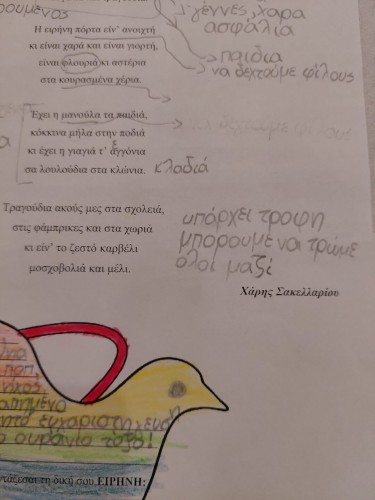 ρουμενος
γέννες, χαρα
ασφάλια
Η ειρήνη πόρτα είν' ανοιχτή
κι είναι χαρά και είναι γιορτή,
είναι φλουριά κι αστέρια
στα κουρασμένα χέρια.
παιδια
να δεχτούμε φίλους
Έχει η μανούλα τα παιδιά,
κόκκινα μήλα στην ποδιά
κι έχει η γιαγιά τ' αγγόνια
σα λουλούδια στα κλώνια.
κλαδιά
να δεχτουμε φιλους
Τραγούδια ακούς μες στα σχολειά,
στις φάμπρικες και στα χωριά
κι είν' το ζεστό καρβέλι
μοσχοβολιά και μέλι.
υπάρχει τροφη
μπορουμε να τρώμε
όλοι μαζί
Χάρης Σακελλαρίου
ευχαριστη
ουράνιο τόξο!
τη δική σου ΕΙΡΗΝΗ: